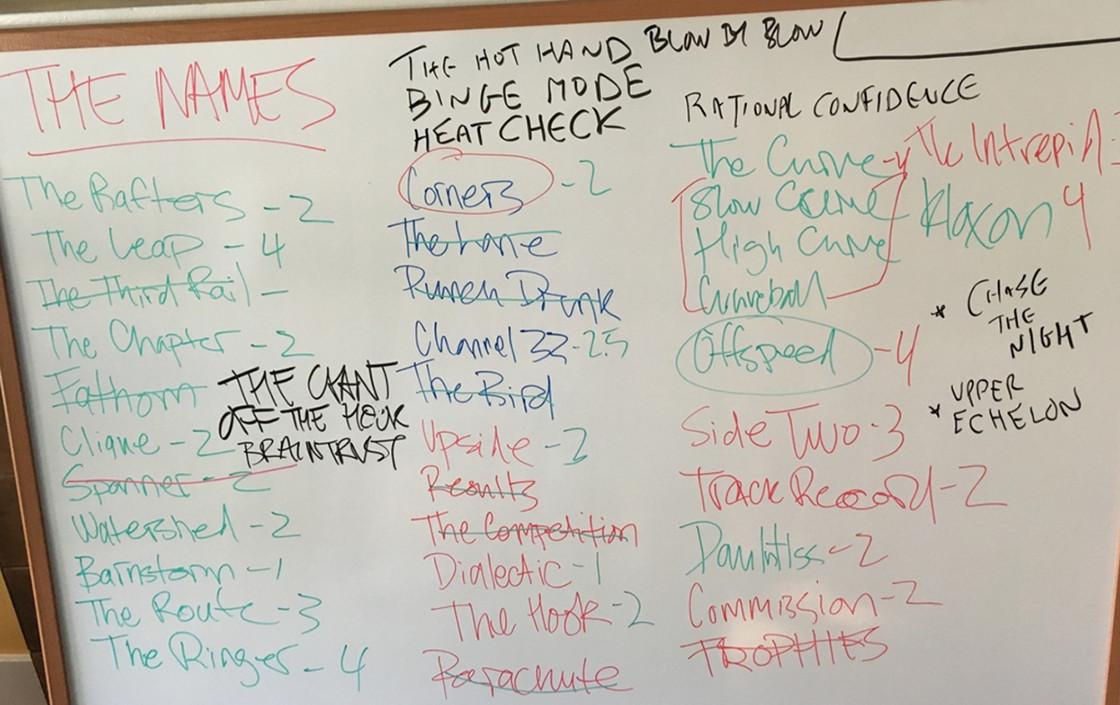 THE NAMES
The Rafters - 2
The Leap - 4
The Third Rail -
The Chapter - 2
Fathom
Clique - 2
Spanner - 2
Watershed - 2
Barnstorm - 1
The Route - 3
The Ringer - 4
THE CANT
OFF THE HOOK
BRAINTRUST
THE HOT HAND
BINGE MODE
HEAT CHECK
Corners - 2
The Lane
Runen Drunk
Channel 32 - 2.5
The Bird
Upside - 2
Results
The Competition
Dialectic - 1
The Hook - 2
Parachute
BLOW BY BLOW
RATIONAL CONFIDENCE
The Curve - 4
Slow Curve
High Curve
Curveball
Offspeed - 4
Side Two - 3
Track Record - 2
Dauntlss - 2
Commission - 2
TROPHIES
The Intrepid -
Klaxon 4
* CHASE
THE
NIGHT
* UPPER
ECHELON